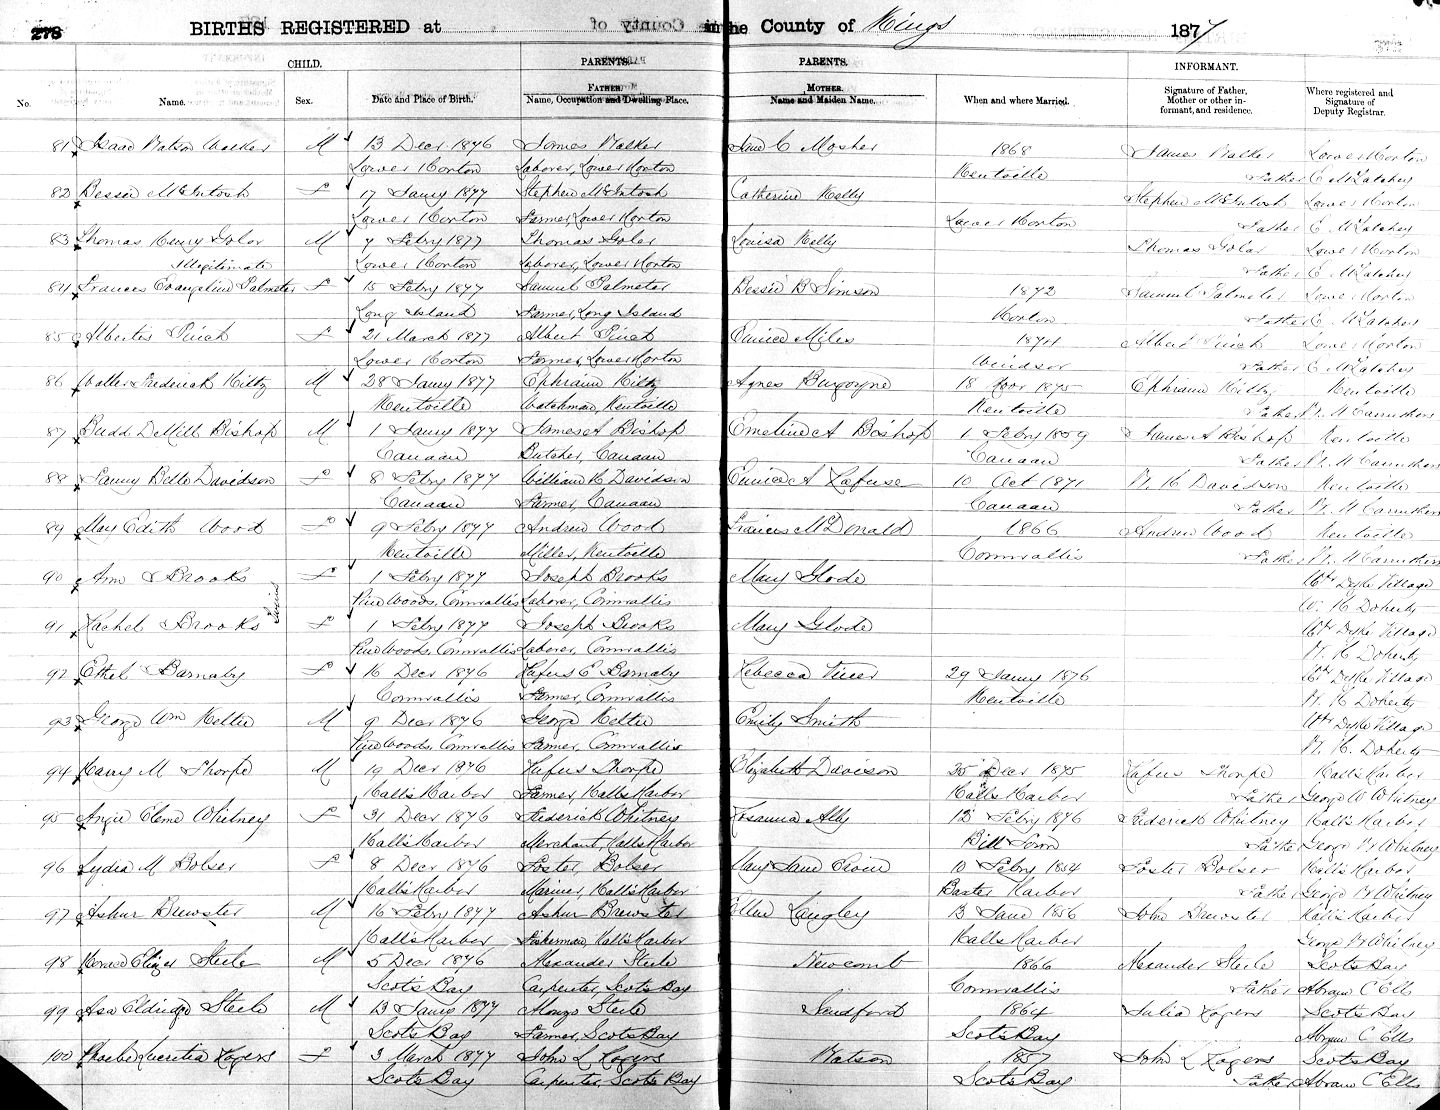 278 BIRTHS REGISTERED at in the County of Kings 1877
CHILD. PARENTS. PARENTS. INFORMANT.
No. Name. Sex. Date and Place of Birth. FATHER. Name, Occupation and Dwelling Place. MOTHER. Name and Maiden Name. When and where Married. Signature of Father, Mother or other informant, and residence. Where registered and Signature of Deputy Registrar.
81 Isaac Watson Walker M 13 Decr 1876 James Walker Jane C Mosher 1868 James Walker Lower Horton
Lower Horton Laborer, Lower Horton Kentville Father E McLatchey
82 Bessie McIntosh F 17 Jany 1877 Stephen McIntosh Catherine Kelly Stephen McIntosh Lower Horton
Lower Horton Farmer, Lower Horton Lower Horton Father E McLatchey
83 Thomas Henry Goler M 7 Febry 1877 Thomas Goler Louisa Kelly Thomas Goler Lower Horton
Illegitimate Lower Horton Laborer, Lower Horton Father E McLatchey
84 Frances Evangeline Palmeter F 15 Febry 1877 Samuel Palmeter Bessie B Simson 1872 Samuel Palmeter Lower Horton
Long Island Farmer, Long Island Horton Father E McLatchey
85 Albertie Finch F 21 March 1877 Albert Finch Eunice Miles 1874 Albert Finch Lower Horton
Lower Horton Farmer, Lower Horton Windsor Father E McLatchey
86 Walter Frederick Kilty M 28 Jany 1877 Ephraim Kilty Agnes Burgoyne 18 Novr 1875 Ephraim Kilty Kentville
Kentville Watchman, Kentville Kentville Father W. H Carruthers
87 Budd DeMill Bishop M 1 Jany 1877 James A Bishop Emeline A Bishop 1 Febry 1859 James A Bishop Kentville
Canaan Butcher, Canaan Canaan Father W. H Carruthers
88 Fanny Belle Davidson F 8 Febry 1877 William H Davidson Eunice A Lafuse 10 Oct 1871 W. H Davidson Kentville
Canaan Farmer, Canaan Canaan Father W. H Carruthers
89 May Edith Wood F 9 Febry 1877 Andrew Wood Frances McDonald 1866 Andrew Wood Kentville
Kentville Miller, Kentville Cornwallis Father W. H Carruthers
90 Ann Brooks F 1 Febry 1877 Joseph Brooks Mary Glode Dyke Village
Twins Pine Woods, Cornwallis Laborer, Cornwallis W. H Doherty
91 Rachel Brooks F 1 Febry 1877 Joseph Brooks Mary Glode Dyke Village
Pine Woods, Cornwallis Laborer, Cornwallis W. H Doherty
92 Ethel Barnaby F 16 Decr 1876 Rufus E Barnaby Rebecca 29 Jany 1876 Dyke Village
Cornwallis Farmer, Cornwallis Kentville W. H Doherty
93 George Wm Keltie M 9 Decr 1876 George Keltie Emily Smith Dyke Village
Pine Woods, Cornwallis Farmer, Cornwallis W. H. Doherty
94 Harry M Thorpe M 19 Decr 1876 Rufus Thorpe Elizabeth Davison 25 Decr 1875 Rufus Thorpe Halls Harbor
Halls Harbor Farmer, Halls Harbor Halls Harbor Father George W Whitney
95 Angie Whitney F 31 Decr 1876 Frederick Whitney Rosanna 12 Febry 1876 Frederick Whitney Halls Harbor
Halls Harbor Merchant, Halls Harbor Bill Town Father George W Whitney
96 Lydia M Bolser F 8 Decr 1876 Foster Bolser Mary Jane 10 Febry 1854 Foster Bolser Halls Harbor
Halls Harbor Mariner, Halls Harbor Baxter Harbor Father George W Whitney
97 Ashur Brewster M 16 Febry 1877 Ashur Brewster Ellen Langley 13 June 1856 John Brewster Halls Harbor
Halls Harbor Fisherman, Halls Harbor Halls Harbor George W Whitney
98 Horace Steele M 5 Decr 1876 Alexander Steele Newcomb 1866 Alexander Steele Scots Bay
Scots Bay Carpenter, Scots Bay Cornwallis Father Abram C Ells
99 Asa Eldridge Steele M 13 Jany 1877 Alonzo Steele Sandford 1864 Julia Rogers Scots Bay
Scots Bay Farmer, Scots Bay Scots Bay Abram C Ells
100 Phoebe Lucretia Rogers F 3 March 1877 John L Rogers Watson 1857 John L Rogers Scots Bay
Scots Bay Carpenter, Scots Bay Scots Bay Father Abram C Ells